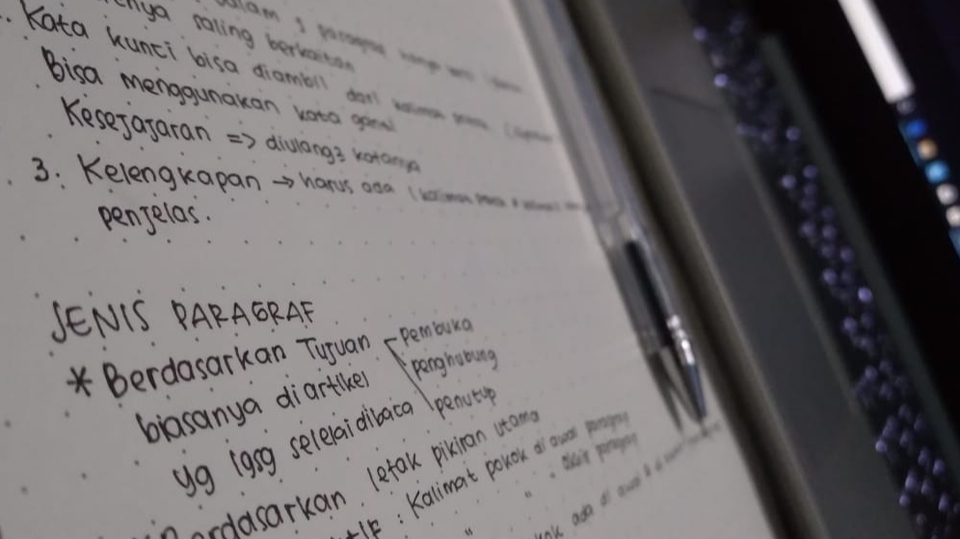 dalam 3 paragraf
saling berkaitan
Kata kunci bisa diambil dari kalimat
Bisa menggunakan kata ganti
Kesejajaran => diulang2 katanya
3. Kelengkapan → harus ada (kalimat
penjelas.
JENIS PARAGRAF
* Berdasarkan Tujuan
pembuka
penghubung
penutup
biasanya di artikel
yg lgsg selesai dibaca
Berdasarkan letak pikiran utama
: Kalimat pokok di awal paragraf
" " akhir paragraf
ada di awal &